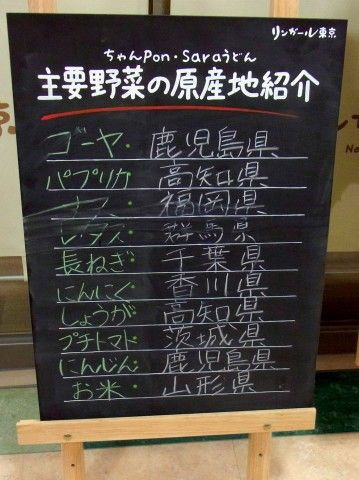 リンガール東京
ちゃんPon・Saraうどん
主要野菜の原産地紹介
ゴーヤ・鹿児島県
パプリカ・高知県
ナス・福岡県
レタス・群馬県
長ねぎ・千葉県
にんにく・香川県
しょうが・高知県
プチトマト・茨城県
にんじん・鹿児島県
お米・山形県